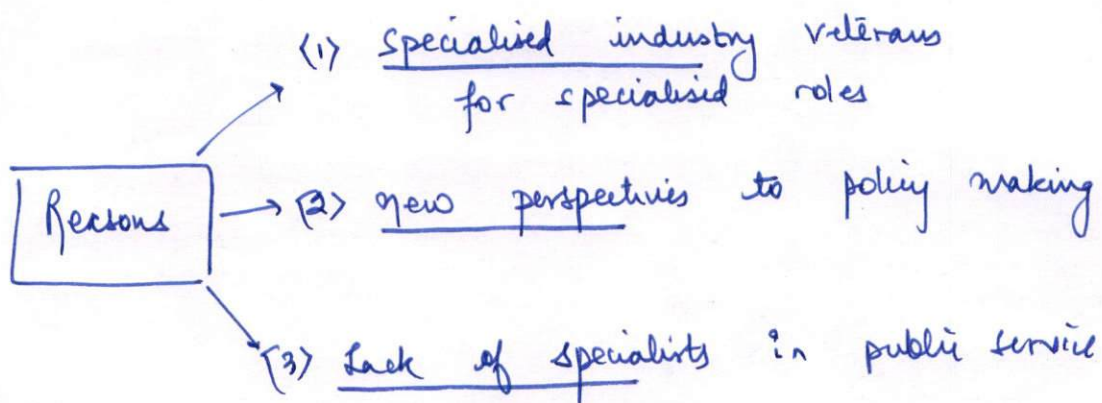 (1) specialised industry veterans
for specialised roles
Reasons
(2) new perspectives to policy making
(3) Lack of specialists in public service